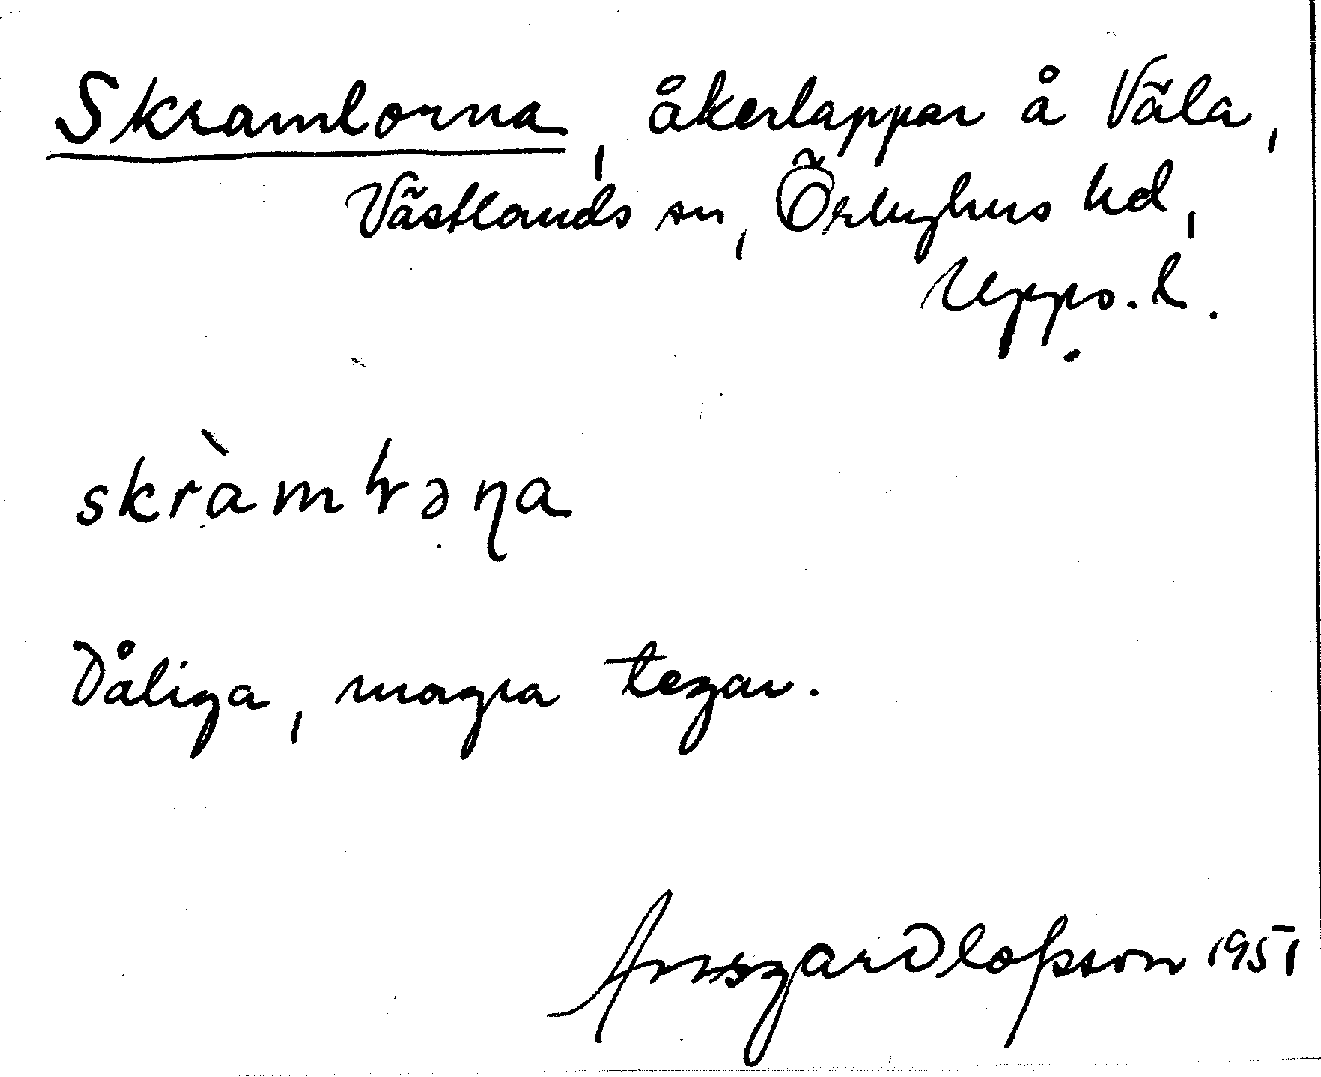 Skramlorna, åkerlappar å Väla,
Västlands sn, Örbyhus hd,
Upps. l.
skràmɫəɳa
Dåliga, magra tegar.
Ansgar Olofsson 1951